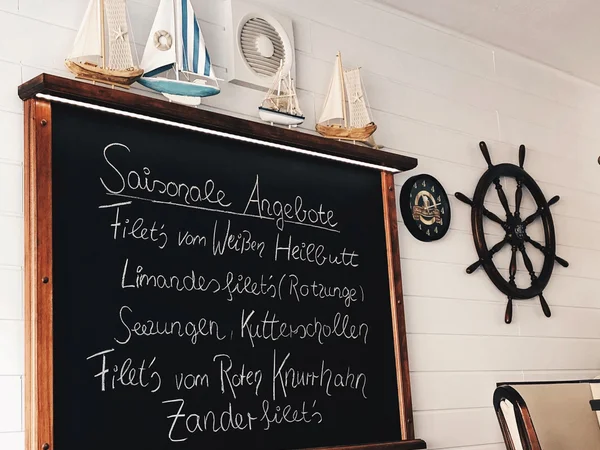 Saisonale Angebote
Filet's vom Weißen Heilbutt
Limandesfilet's (Rotzunge)
Seezungen, Kutterschollen
Filet's vom Roten Knurrhahn
Zanderfilet's